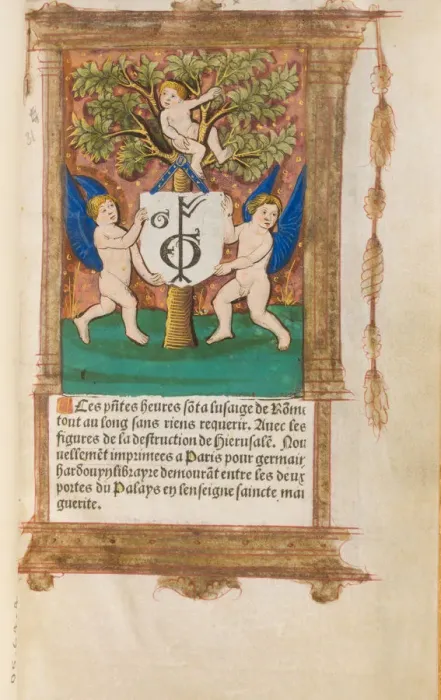 Les pñtes heures sõt a lusaige de Rõme
tout au long sans riens requerir. Auec les
figures de la destruction de Hierusalẽ. Nou
uellemẽt imprimees a Paris pour germain
hardouyn librayre demourãt entre les deux
portes du Palays en lenseigne saincte mar
guerite.